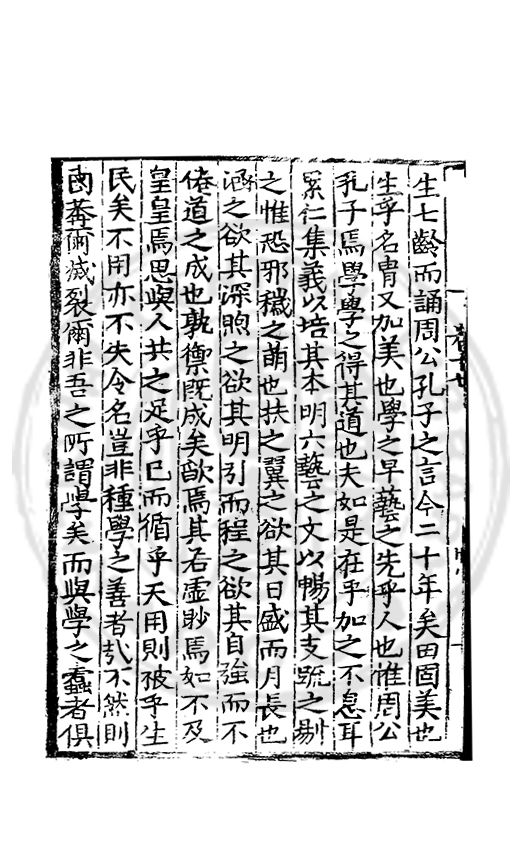 生七齡而誦周公孔子之言今二十年矣田固美也
生孚名胄又加美也學之早藝之先乎人也惟周公
孔子焉學學之得其道也夫如是在乎加之不息耳
累仁集義以培其本明六藝之文以暢其支䟽之剔
之惟恐邪穢之萌也扶之翼之欲其日盛而月長也
涵之欲其深煦之欲其明引而程之欲其自強而不
倦道之成也孰禦既成矣歃焉其若虛眇焉如不及
皇皇焉思與人共之足乎已而循乎天用則被乎生
民矣不用亦不失令名豈非種學之善者㢤不然則
鹵莽爾滅裂爾非吾之所謂學矣而與學之蠹者俱